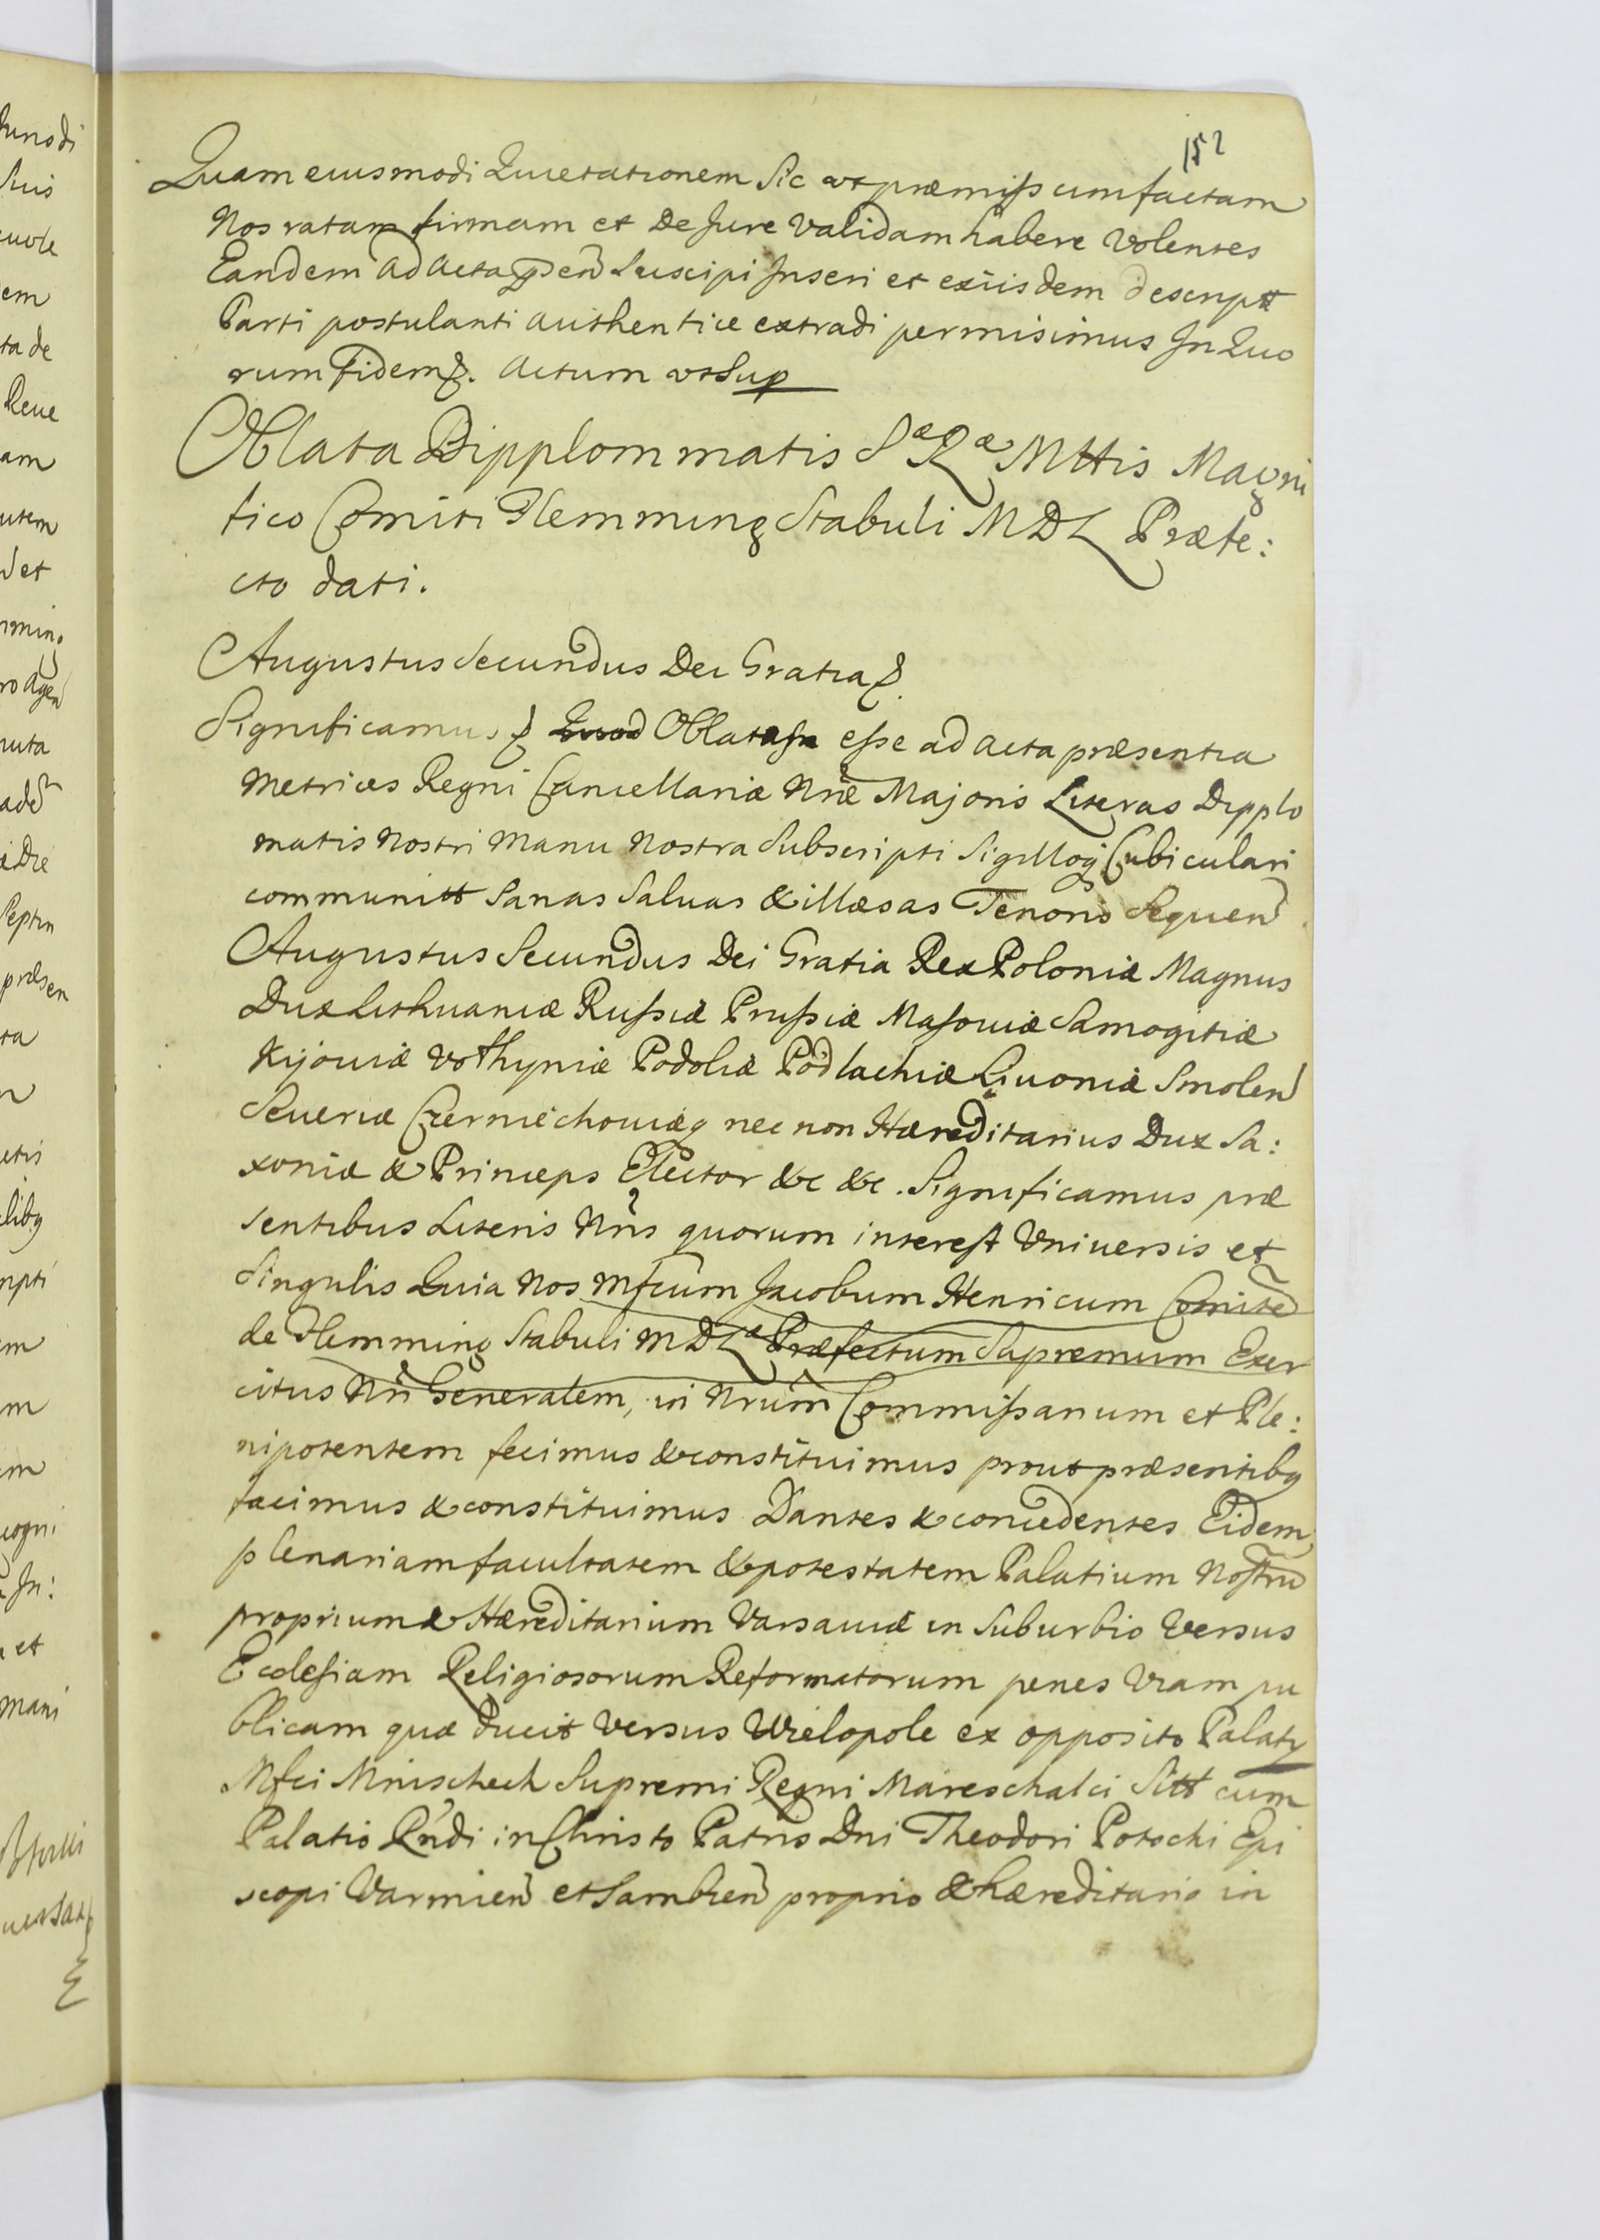 152
Quam eiusmodi Quietationem Sic ut præmiss cum factam
Nos ratam firmam et De Jure Validam habere Volentes
Eandem ad Acta p͞sen Suscipi Inseri et exiisdem descriptt
Parti postulanti authentice extradi permisimus In Quo
rum Fidem &. Actum ut Sup
Oblata Dipplommatis Sæ Ræ Mttis Magni
fico Comiti Flemming Stabuli MDL Præfe:
cto dati.
Augustus Secundus Dei Gratia &.
Significamus & Quod Oblatas esse ad acta præsentia
Metrices Regni Cancellariæ Nræ Majoris Literas Dipplo
matis Nostri Manu Nostra Subscripti Sigilloq Cubiculari
communitt Sanas Saluas & illæsas Tenoris Sequen
Augustus Secundus Dei Gratia Rex Poloniæ Magnus
Dux Lithuaniæ Russiæ Prussiæ Masouiæ Samogitiæ
Kijouiæ Volhyniæ Podoliæ Podlachiæ Liuoniæ Smolen
Seueriæ Czerniechouiæq nec non Hæreditarius Dux Sa:
xoniæ & Princeps Elector &c &c. Significamus præ
sentibus Literis Nris quorum interest Vniuersis et
Singulis Quia Nos Mfcum Jacobum Henricum Comitem
de Flemming Stabuli MDLæ Præfectum Supremum Exer
citus Nri Generalem, in Nrum Commissarium et Ple:
nipotentem fecimus & constituimus prout præsentibq
facimus & constituimus Dantes & concedentes Eidem
plenariam facultatem & potestatem Palatium Nostru
proprium & Hæreditarium Varsauiæ in Suburbio Versus
Ecclesiam Religiosorum Reformatorum penes Viam pu
blicam quæ ducit Versus Wielopole ex opposito Palaty
Mfci Mnischech Supremi Regni Mareschalci Sitt cum
Palatio Rndi in Christo Patris Dni Theodori Potochi Epi
scopi Varmien et Sambien proprio & hæreditario in